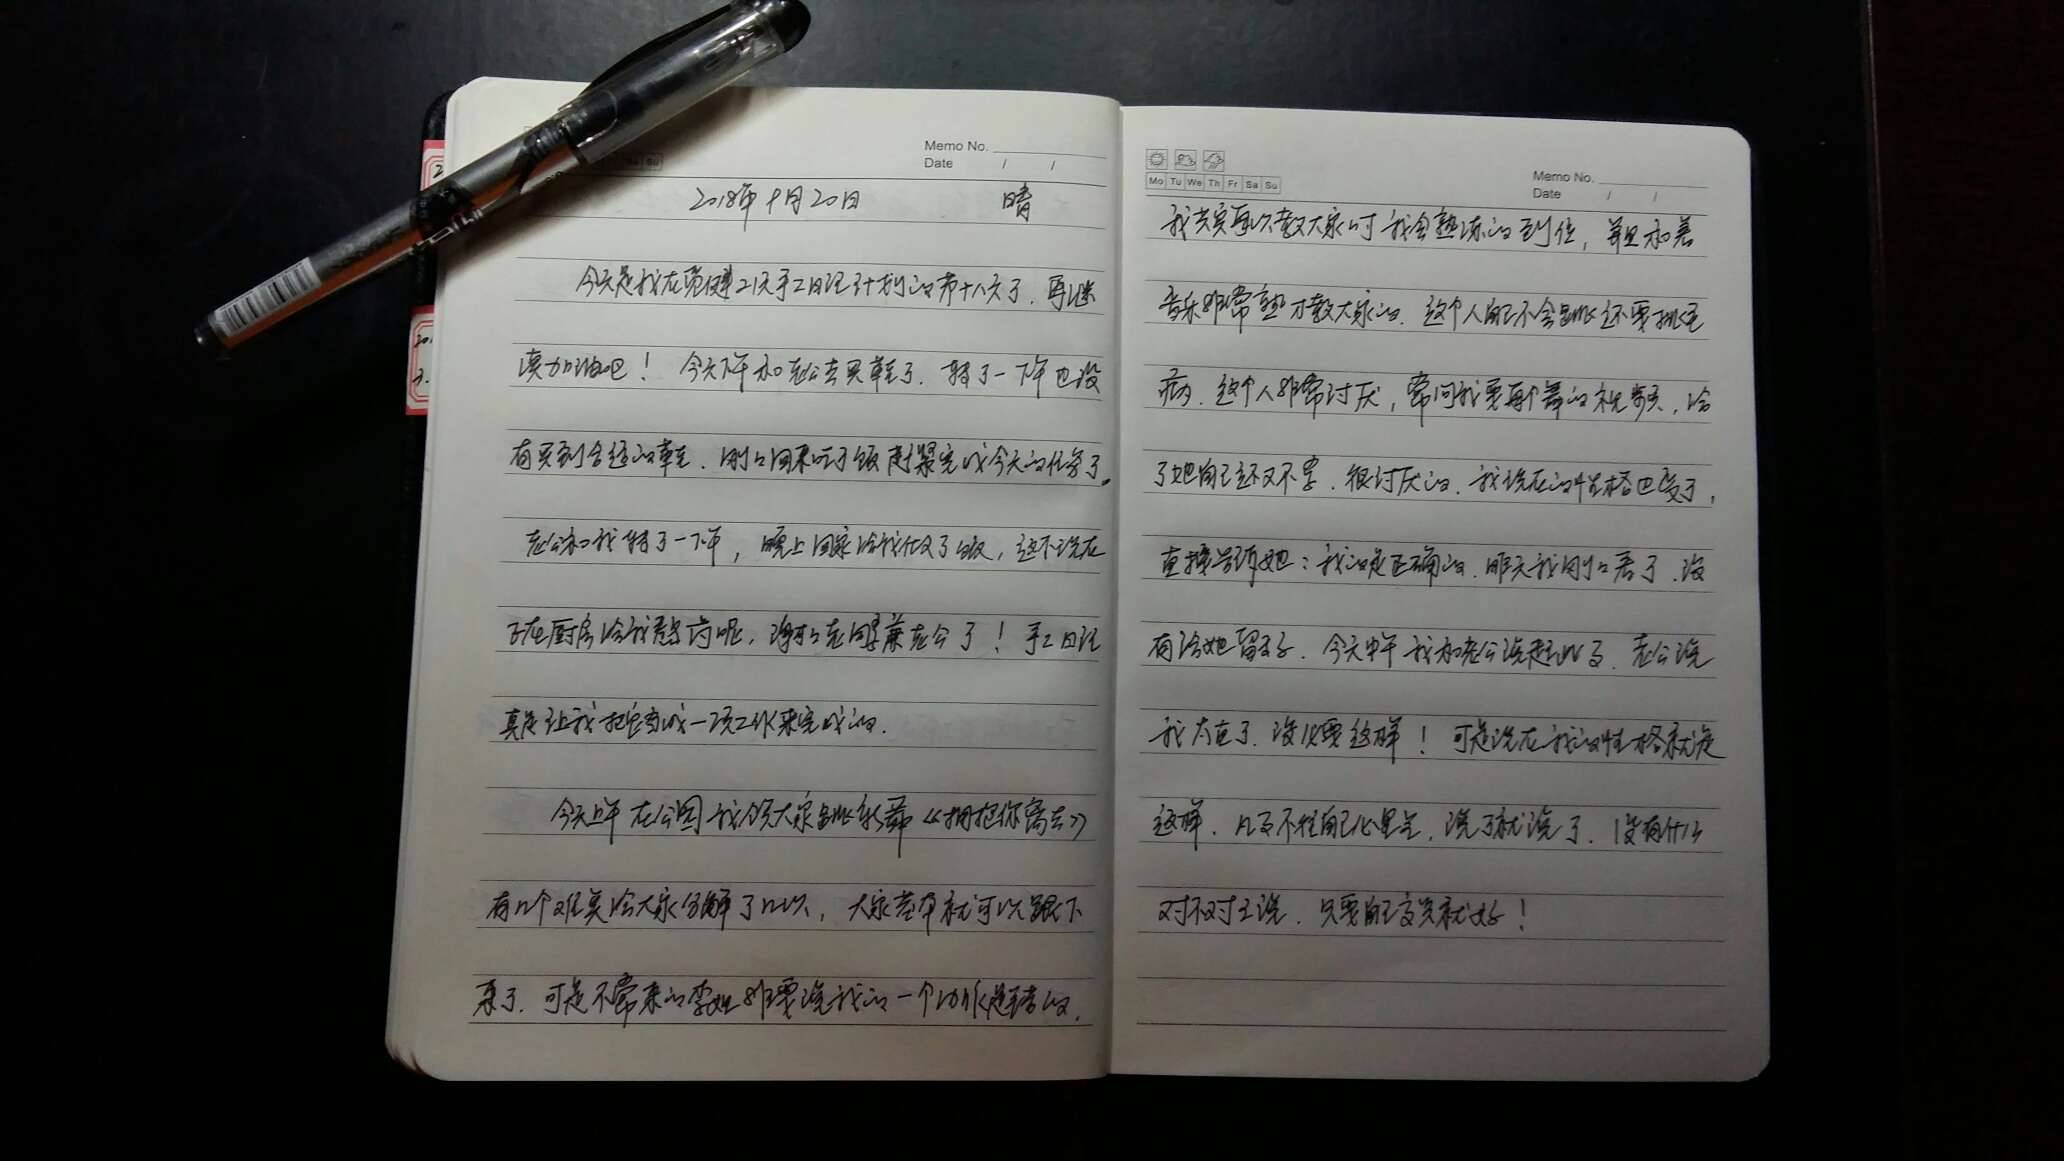 Memo No.
Date / /
2018年9月20日 晴
今天是我在坚持21天手工日记计划的第十八天了.再继
续加油吧！今天下午和老公去买鞋了.转了一下午也没
有买到合适的鞋.刚刚回来吃了饭赶紧完成今天的任务了。
老公和我转了一下午，晚上回家给我做了饭，这不现在
又在厨房给我熬药呢，谢谢老同学兼老公了！手工日记
真是让我把它当成一项工作来完成的.
今天上午在公园我领大家跳新舞《拥抱你离去》
有几个难点给大家分解了几次，大家基本就可以跟下
来了.可是不常来的李姐非要说我的一个动作是错的.
Mo Tu We Th Fr Sa Su
Memo No.
Date / /
我其实每次教大家时我会熟练的到位，并且和着
音乐非常熟才教大家的.这个人自己不会跳还要挑毛
病.这个人非常讨厌，常问我要每个舞的视频，给
了她自己还又不学.很讨厌的.我现在的性格也变了，
直接告诉她：我的是正确的.昨天我刚刚看了.没
有给她留面子.今天中午我和老公说起此事.老公说
我太直了.没必要这样！可是现在我的性格就是
这样.凡事不往自己心里去.说了就说了.没有什么
对不对之说.只要自己高兴就好！